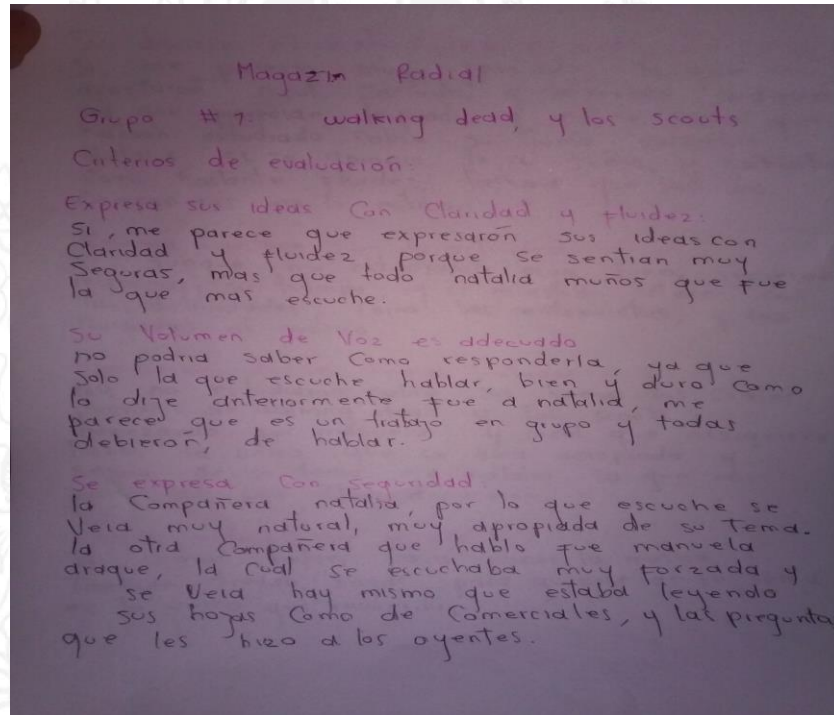 Magazin Radial
Grupo # 7: walking dead, y los scouts
Criterios de evaluación:
Expresa sus ideas Con Claridad y fluidez:
Si, me parece que expresarón sus ideas con
Claridad y fluidez, porque se sentian muy
Seguras, mas que todo natalia muños que fue
la que mas escuche.
Su Volumen de Voz es adecuado
no podria saber Como responderla, ya que
Solo la que escuche hablar, bien y duro como
lo dije anteriormente fue a natalia, me
parece que es un trabajo en grupo y todas
debierón, de hablar.
Se expresa Con seguridad
la Compañera natalia, por lo que escuche se
Veia muy natural, muy apropiada de su Tema.
la otra Compañera que hablo fue manuela
araque, la cual se escuchaba muy forzada y
se Veia hay mismo que estaba leyendo
sus hojas Como de Comerciales, y las pregunta
que les hizo a los oyentes.